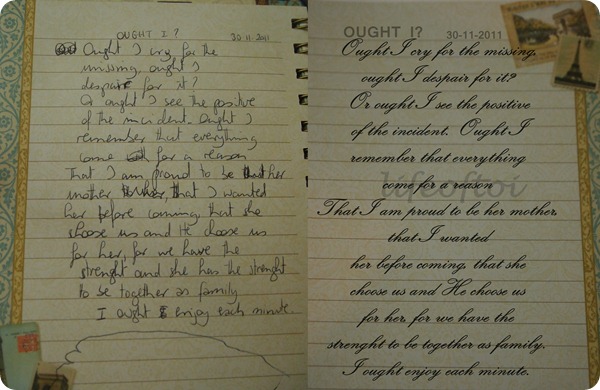 OUGHT I? 30-11-2011
Ought I cry for the
missing, ought I
despair for it?
Or ought I see the positive
of the incident. Ought I
remember that everything
come for a reason
That I am proud to be her
mother, that I wanted
her before coming, that she
choose us and He choose us
for her, for we have the
strenght and she has the strenght
to be together as family.
I ought enjoy each minute.
OUGHT I? 30-11-2011
Ought I cry for the missing,
ought I despair for it?
Or ought I see the positive
of the incident. Ought I
remember that everything
come for a reason
lifeoftoi
That I am proud to be her mother,
that I wanted
her before coming, that she
choose us and He choose us
for her, for we have the
strenght to be together as family.
I ought enjoy each minute.